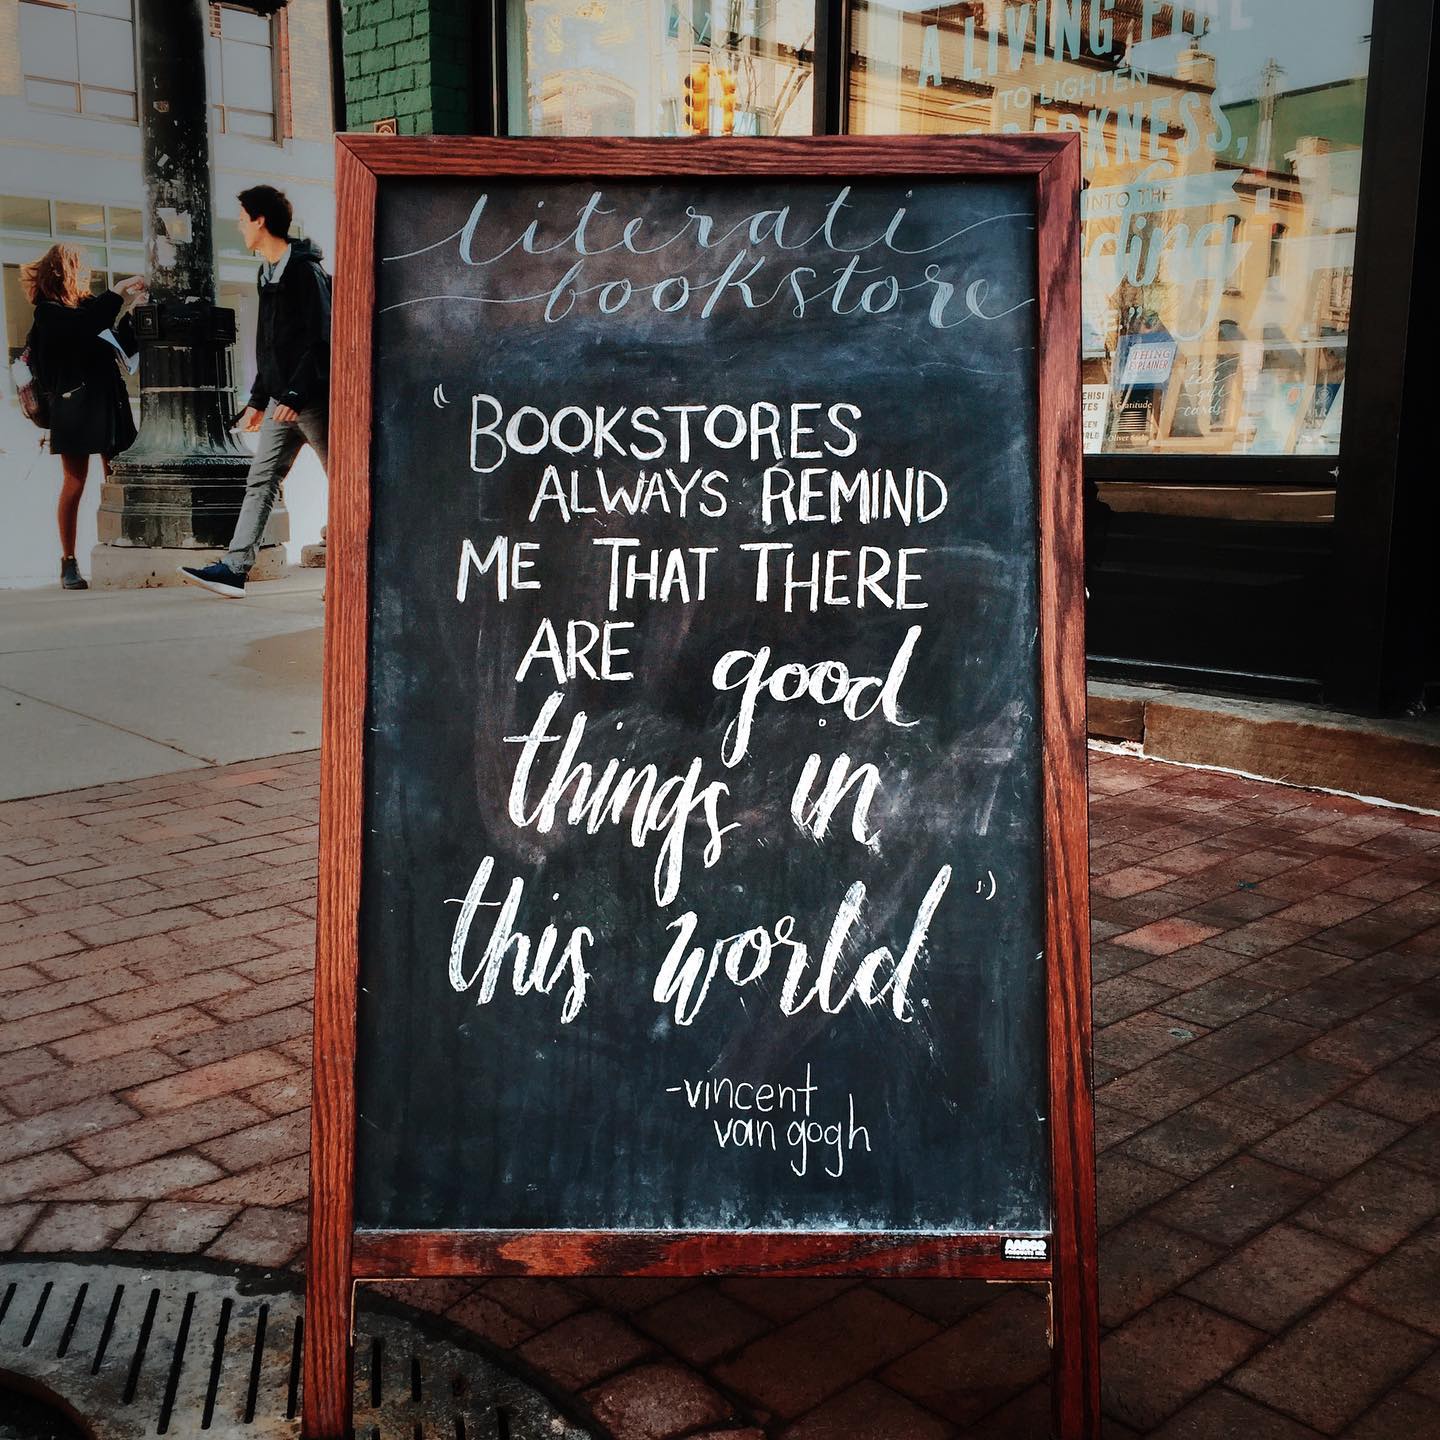 literati
bookstore
"BOOKSTORES
ALWAYS REMIND
ME THAT THERE
ARE good
things in
this world."
-vincent
van gogh
AARCO
A LIVING FIRE
TO LIGHTEN
DARKNESS,
INTO THE
THING
EXPLAINER
Gratitude
Oliver Sacks